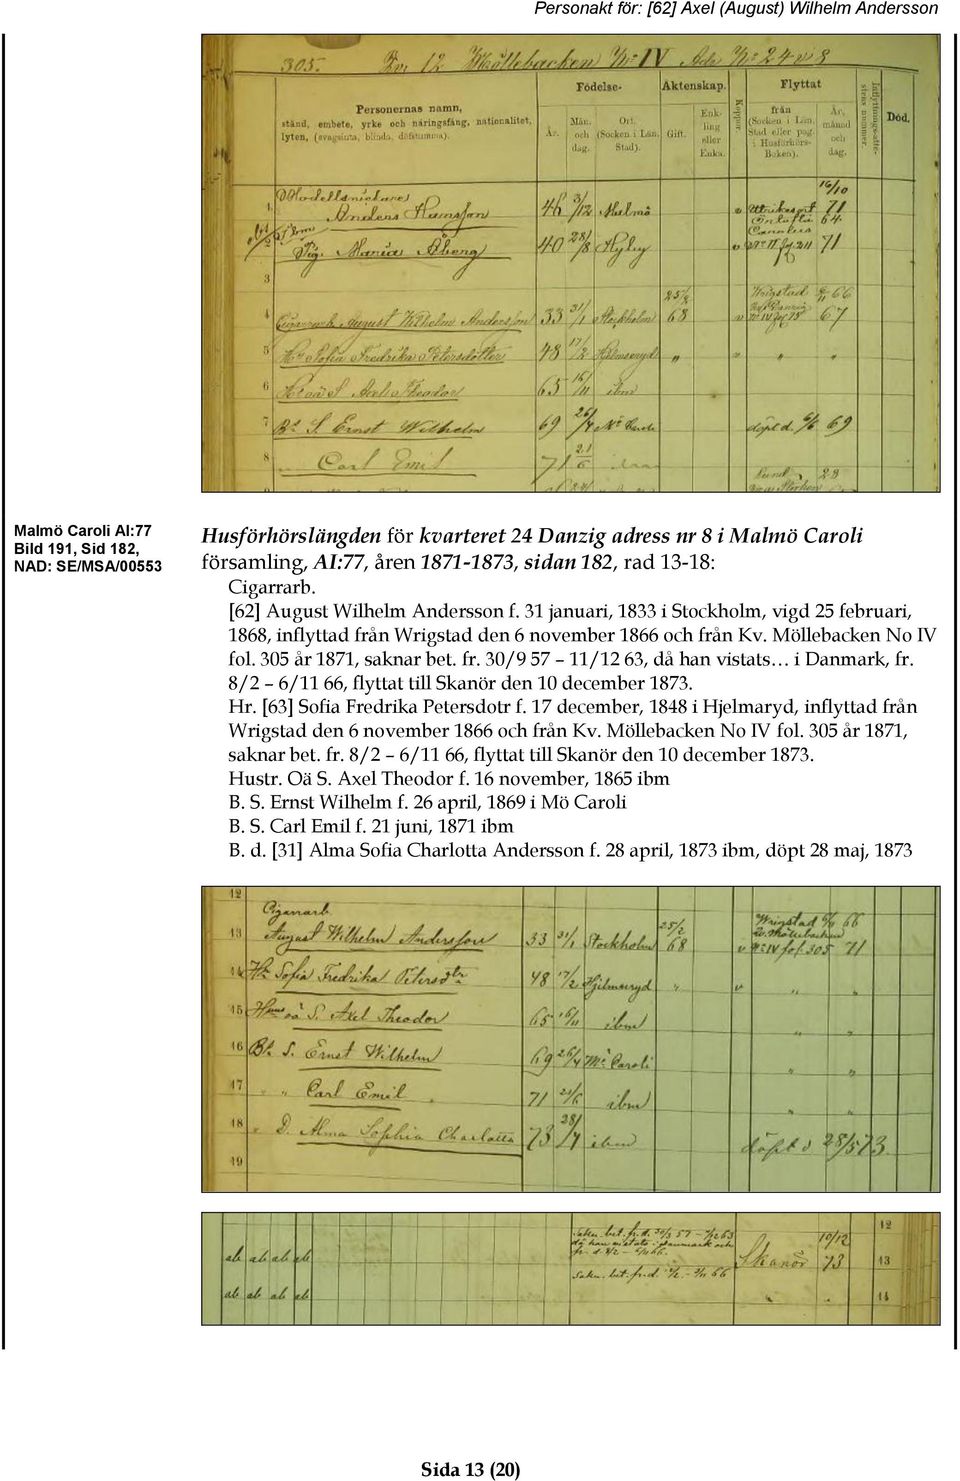 Personakt för: [62] Axel (August) Wilhelm Andersson
305. Kv. 12 Möllebacken No IV Ads No 24 v 8
Personernas namn,
stånd, embete, yrke och näringsfång, nationalitet,
lyten, (svagsinta, blinda, döfstumma).
Födelse-
År. Mån. och dag. Ort. (Socken i Län. Stad).
Äktenskap.
Gift. Enkling eller Enka.
Koppor.
Flyttat
från (Socken i Län, Stad eller pag. i Husförhörs-Boken).
År, månad och dag.
Inflyttnings-attestens nummer.
Död.
1. Modellsnickare 16/10
Anders Hansson 46 3/12 Malmö v 71
2 Pig. Maria Åberg 40 28/8 Hyby v No II fol. 211 71
3
4 Cigarrarb. August Wilhelm Andersson 33 31/1 Stockholm 25/2 68 v Wrigstad 6/11 66 67
5 Hu Sofia Fredrika Petersdotter 48 17/2 Hjelmseryd „ v „ „
6 Hs oä S. Axel Theodor 65 16/11 ibm
7 Bs. S. Ernst Wilhelm 69 26/4 döpt d. 6/6 69
8 Carl Emil 71 21/6
Malmö Caroli AI:77
Bild 191, Sid 182,
NAD: SE/MSA/00553
Husförhörslängden för kvarteret 24 Danzig adress nr 8 i Malmö Caroli
församling, AI:77, åren 1871-1873, sidan 182, rad 13-18:
Cigarrarb.
[62] August Wilhelm Andersson f. 31 januari, 1833 i Stockholm, vigd 25 februari,
1868, inflyttad från Wrigstad den 6 november 1866 och från Kv. Möllebacken No IV
fol. 305 år 1871, saknar bet. fr. 30/9 57 – 11/12 63, då han vistats… i Danmark, fr.
8/2 – 6/11 66, flyttat till Skanör den 10 december 1873.
Hr. [63] Sofia Fredrika Petersdotr f. 17 december, 1848 i Hjelmaryd, inflyttad från
Wrigstad den 6 november 1866 och från Kv. Möllebacken No IV fol. 305 år 1871,
saknar bet. fr. 8/2 – 6/11 66, flyttat till Skanör den 10 december 1873.
Hustr. Oä S. Axel Theodor f. 16 november, 1865 ibm
B. S. Ernst Wilhelm f. 26 april, 1869 i Mö Caroli
B. S. Carl Emil f. 21 juni, 1871 ibm
B. d. [31] Alma Sofia Charlotta Andersson f. 28 april, 1873 ibm, döpt 28 maj, 1873
12 Cigarrarb. Wrigstad 6/11 66
13 August Wilhelm Andersson 33 31/1 Stockholm 25/2 68 v Kv. Möllebacken No IV fol. 305 71
14 Hu Sofia Fredrika Petersdtr 48 17/2 Hjelmseryd „ v „ „
15 Hans oä S. Axel Theodor 65 16/11 ibm „ „
16 Bs. S. Ernst Wilhelm 69 26/4 Mö Caroli „ „
17 „ „ Carl Emil 71 21/6 ibm „ „
18 „ D. Alma Sophia Charlotta 73 28/4 ibm döpt d 28/5 73.
19
Sakn. bet. fr. d. 30/9 57 – 11/12 63 12
ab ab ab ab då han vistats i Danmark och fr. d. 8/2 – 6/11 66. Skanör 10/12 73 13
ab ab ab ab Sakn. bet. fr. d. 8/2 – 6/11 66 „ „ 14
Sida 13 (20)